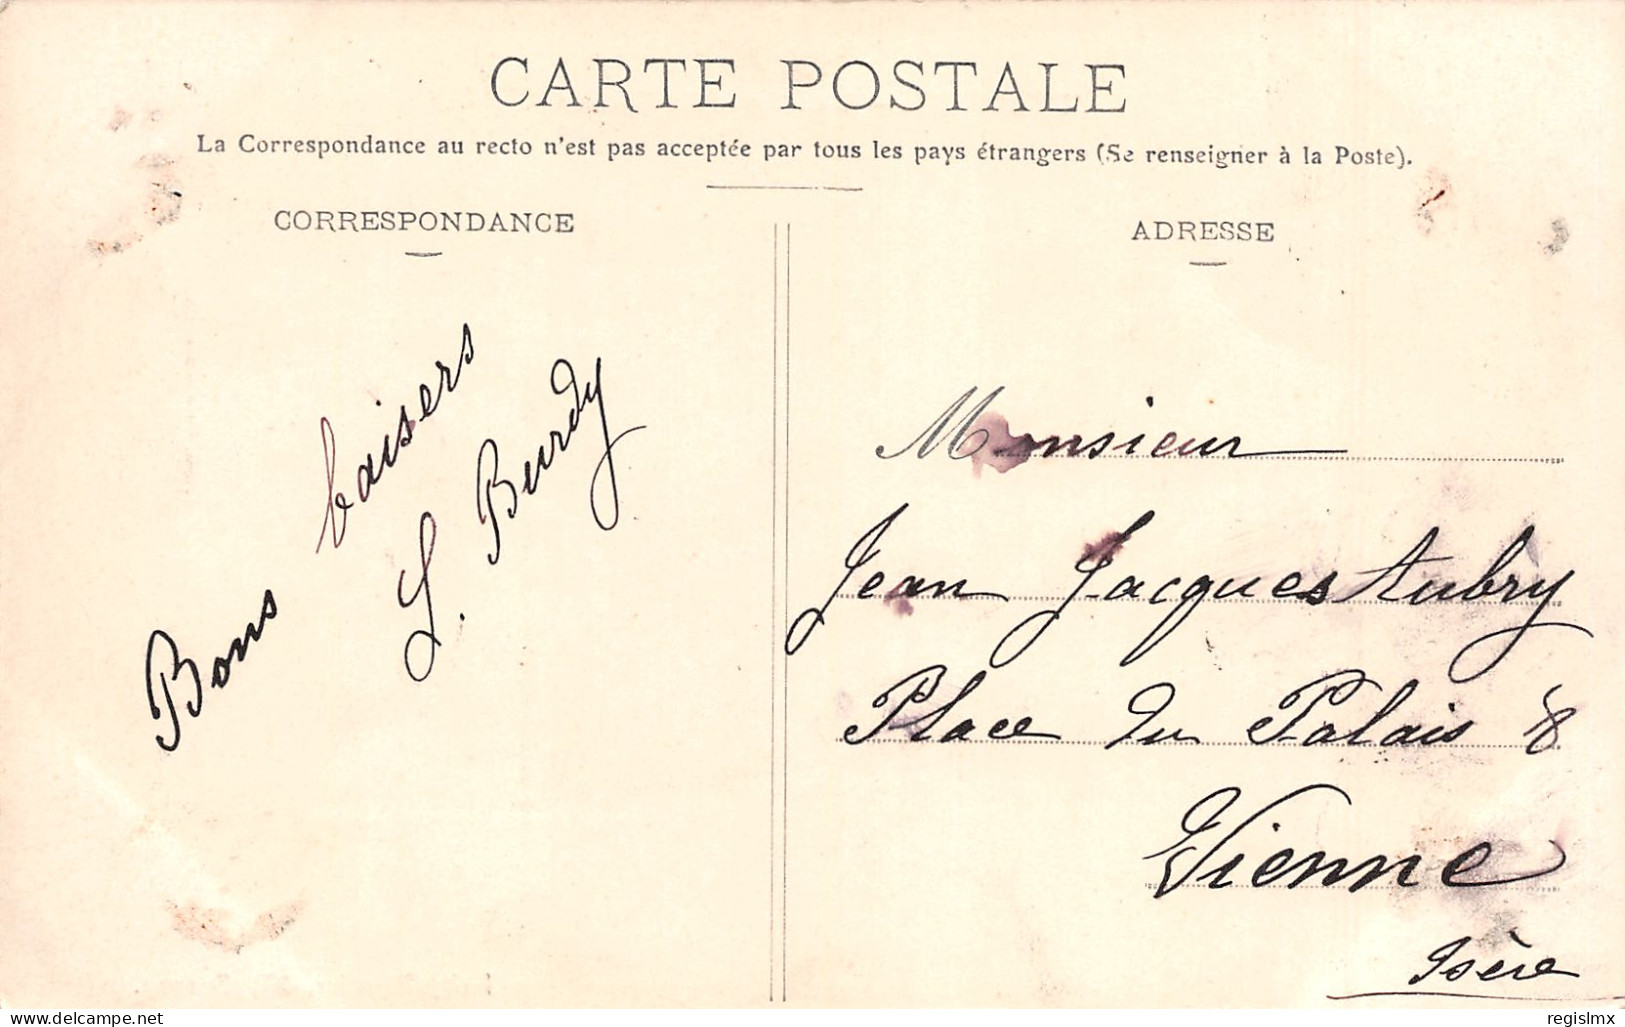 CARTE POSTALE
La Correspondance au recto n'est pas acceptée par tous les pays étrangers (Se renseigner à la Poste).
CORRESPONDANCE
Bons baisers
L. Burdy
ADRESSE
Monsieur
Jean Jacques Aubry
Place du Palais 8
Vienne
Isère
delcampe.net
regislmx